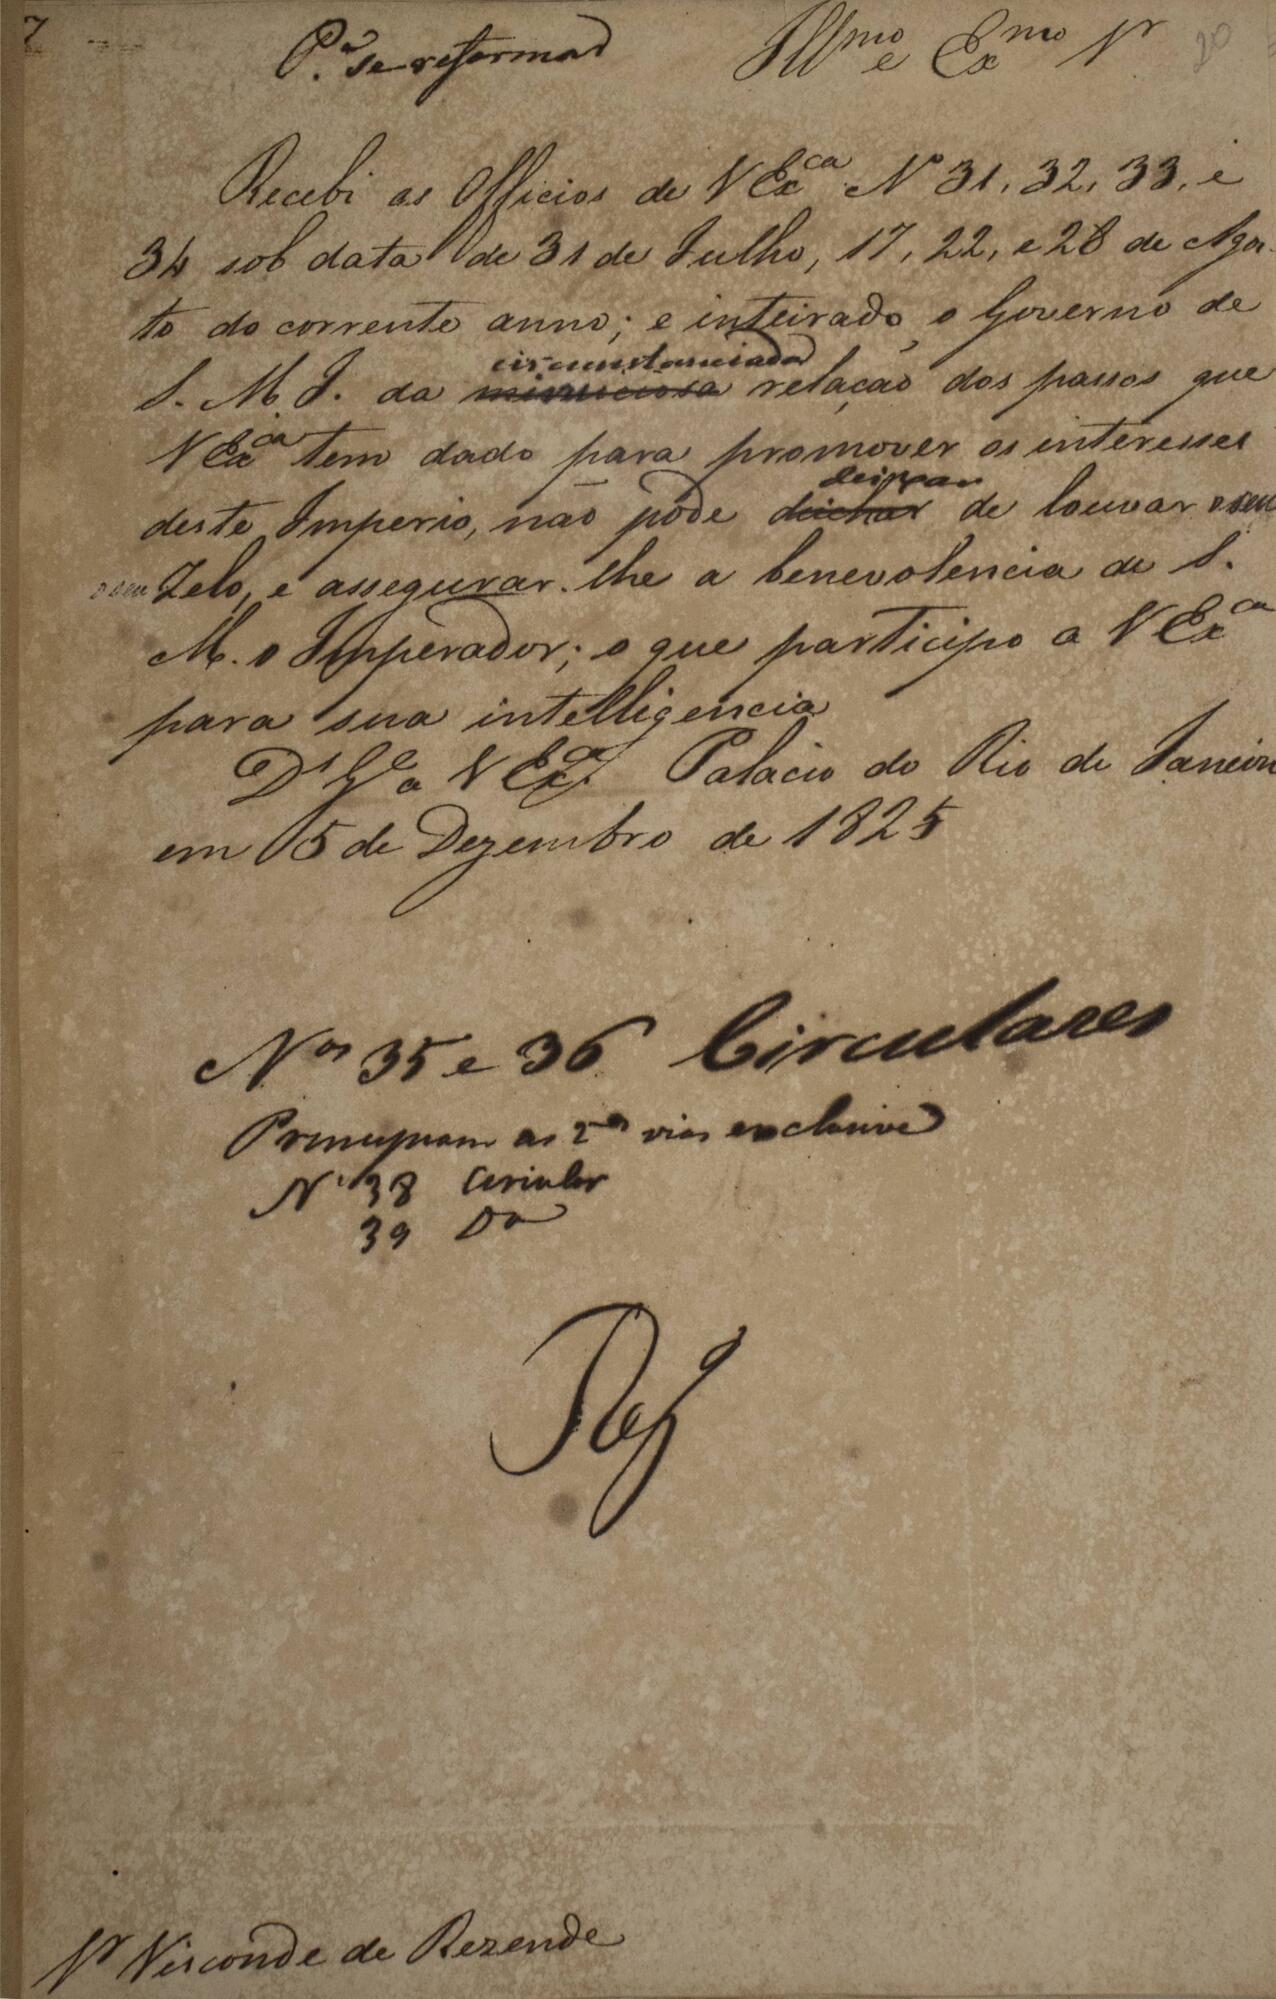 7
P.ª se reformar
Illmo e Exmo Sr
20
Recebi as Officios de V Exca Nº 31, 32, 33, e
34 sob data de 31 de Julho, 17, 22, e 28 de Agos-
to do corrente anno; e inteirado o Governo de
circunstanciada
S. M. I. da minuciosa relação dos passos que
V Exca tem dado para promover os interesses
deixar
deste Imperio, não póde deichar de louvar o seu
o seu Zelo, e assegurar-lhe a benevolencia de S.
M. o Imperador; o que participo a V Exca
para sua intelligencia
Ds Ge a V Exca. Palacio do Rio de Janeiro
em 5 de Dezembro de 1825
Nos 35 e 36 Circulares
Principiam as 2as vias exclusive
Nº 38 Circular
39 Do
Sr Visconde de Rezende